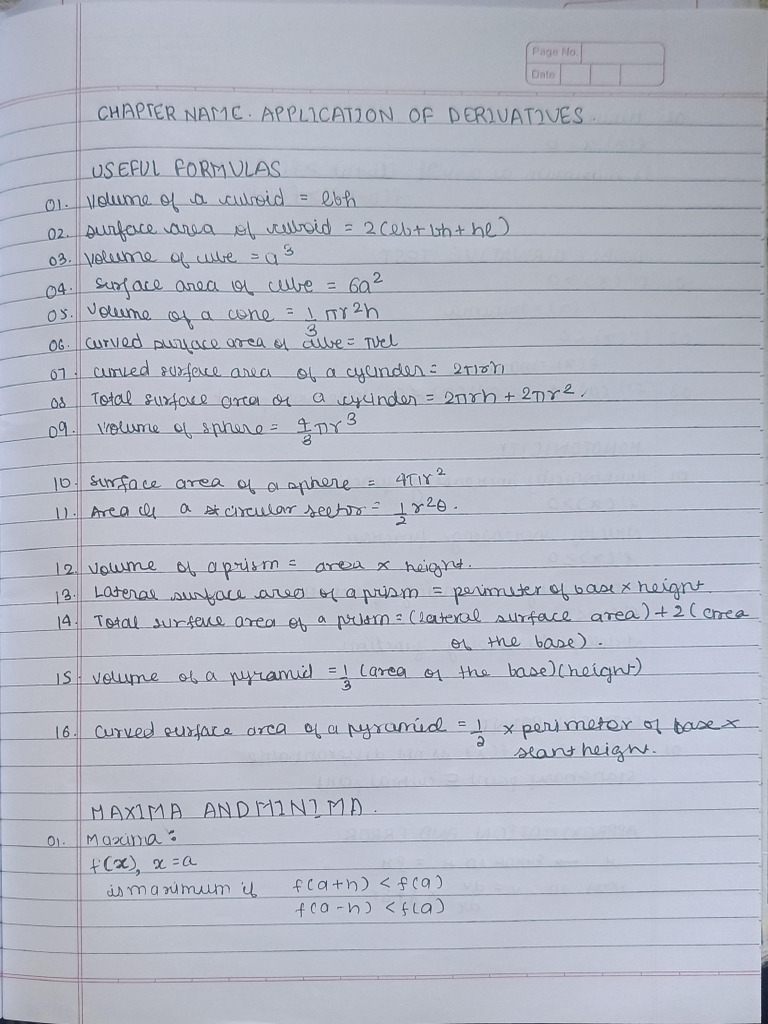 Page No.
Date
CHAPTER NAME. APPLICATION OF DERIVATIVES.
USEFUL FORMULAS
01. Volume of a cuboid = lbh
02. surface area of cuboid = 2(lb+bh+hl)
03. Volume of cube = a³
04. Surface area of cube = 6a²
05. Volume of a cone = 1/3 πr²h
06. Curved surface area of cube = πrl
07. curved surface area of a cylinder = 2πrh
08 Total surface area of a cylinder = 2πrh + 2πr².
09. Volume of sphere = 4/3 πr³
10. Surface area of a sphere = 4πr²
11. Area of a circular sector = 1/2 r²θ.
12. Volume of a prism = area x height.
13. Lateral surface area of a prism = perimeter of base x height.
14. Total surface area of a prism = (lateral surface area) + 2(area
of the base).
15. Volume of a pyramid = 1/3 (area of the base)(height)
16. Curved surface area of a pyramid = 1/2 x perimeter of base x
slant height.
MAXIMA AND MINIMA.
01. Maxima:
f(x), x = a
is maximum if f(a+h) < f(a)
f(a-h) < f(a)